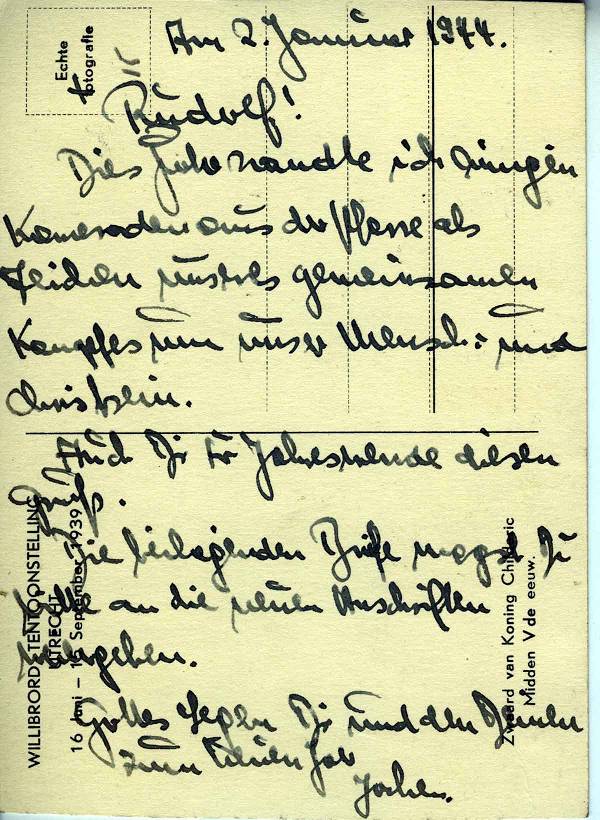 Echte
fotografie
Am 2. Januar 1944.
Rudolf!
Dies sandte ich einigen
Kameraden aus der als
Zeichen unseres gemeinsamen
Kampfes um unser Mensch- und
Christsein.
Auch Dir zur Jahreswende diesen
Gruß.
Die beiliegenden Briefe magst Du
bitte an die neuen Anschriften
weitergeben.
Gottes Segen Dir und den Deinen
zum neuen Jahr
Jochen.
WILLIBRORD-TENTOONSTELLING
UTRECHT
16 Juni – 15 September 1939
Zwaard van Koning Childeric
Midden V de eeuw.